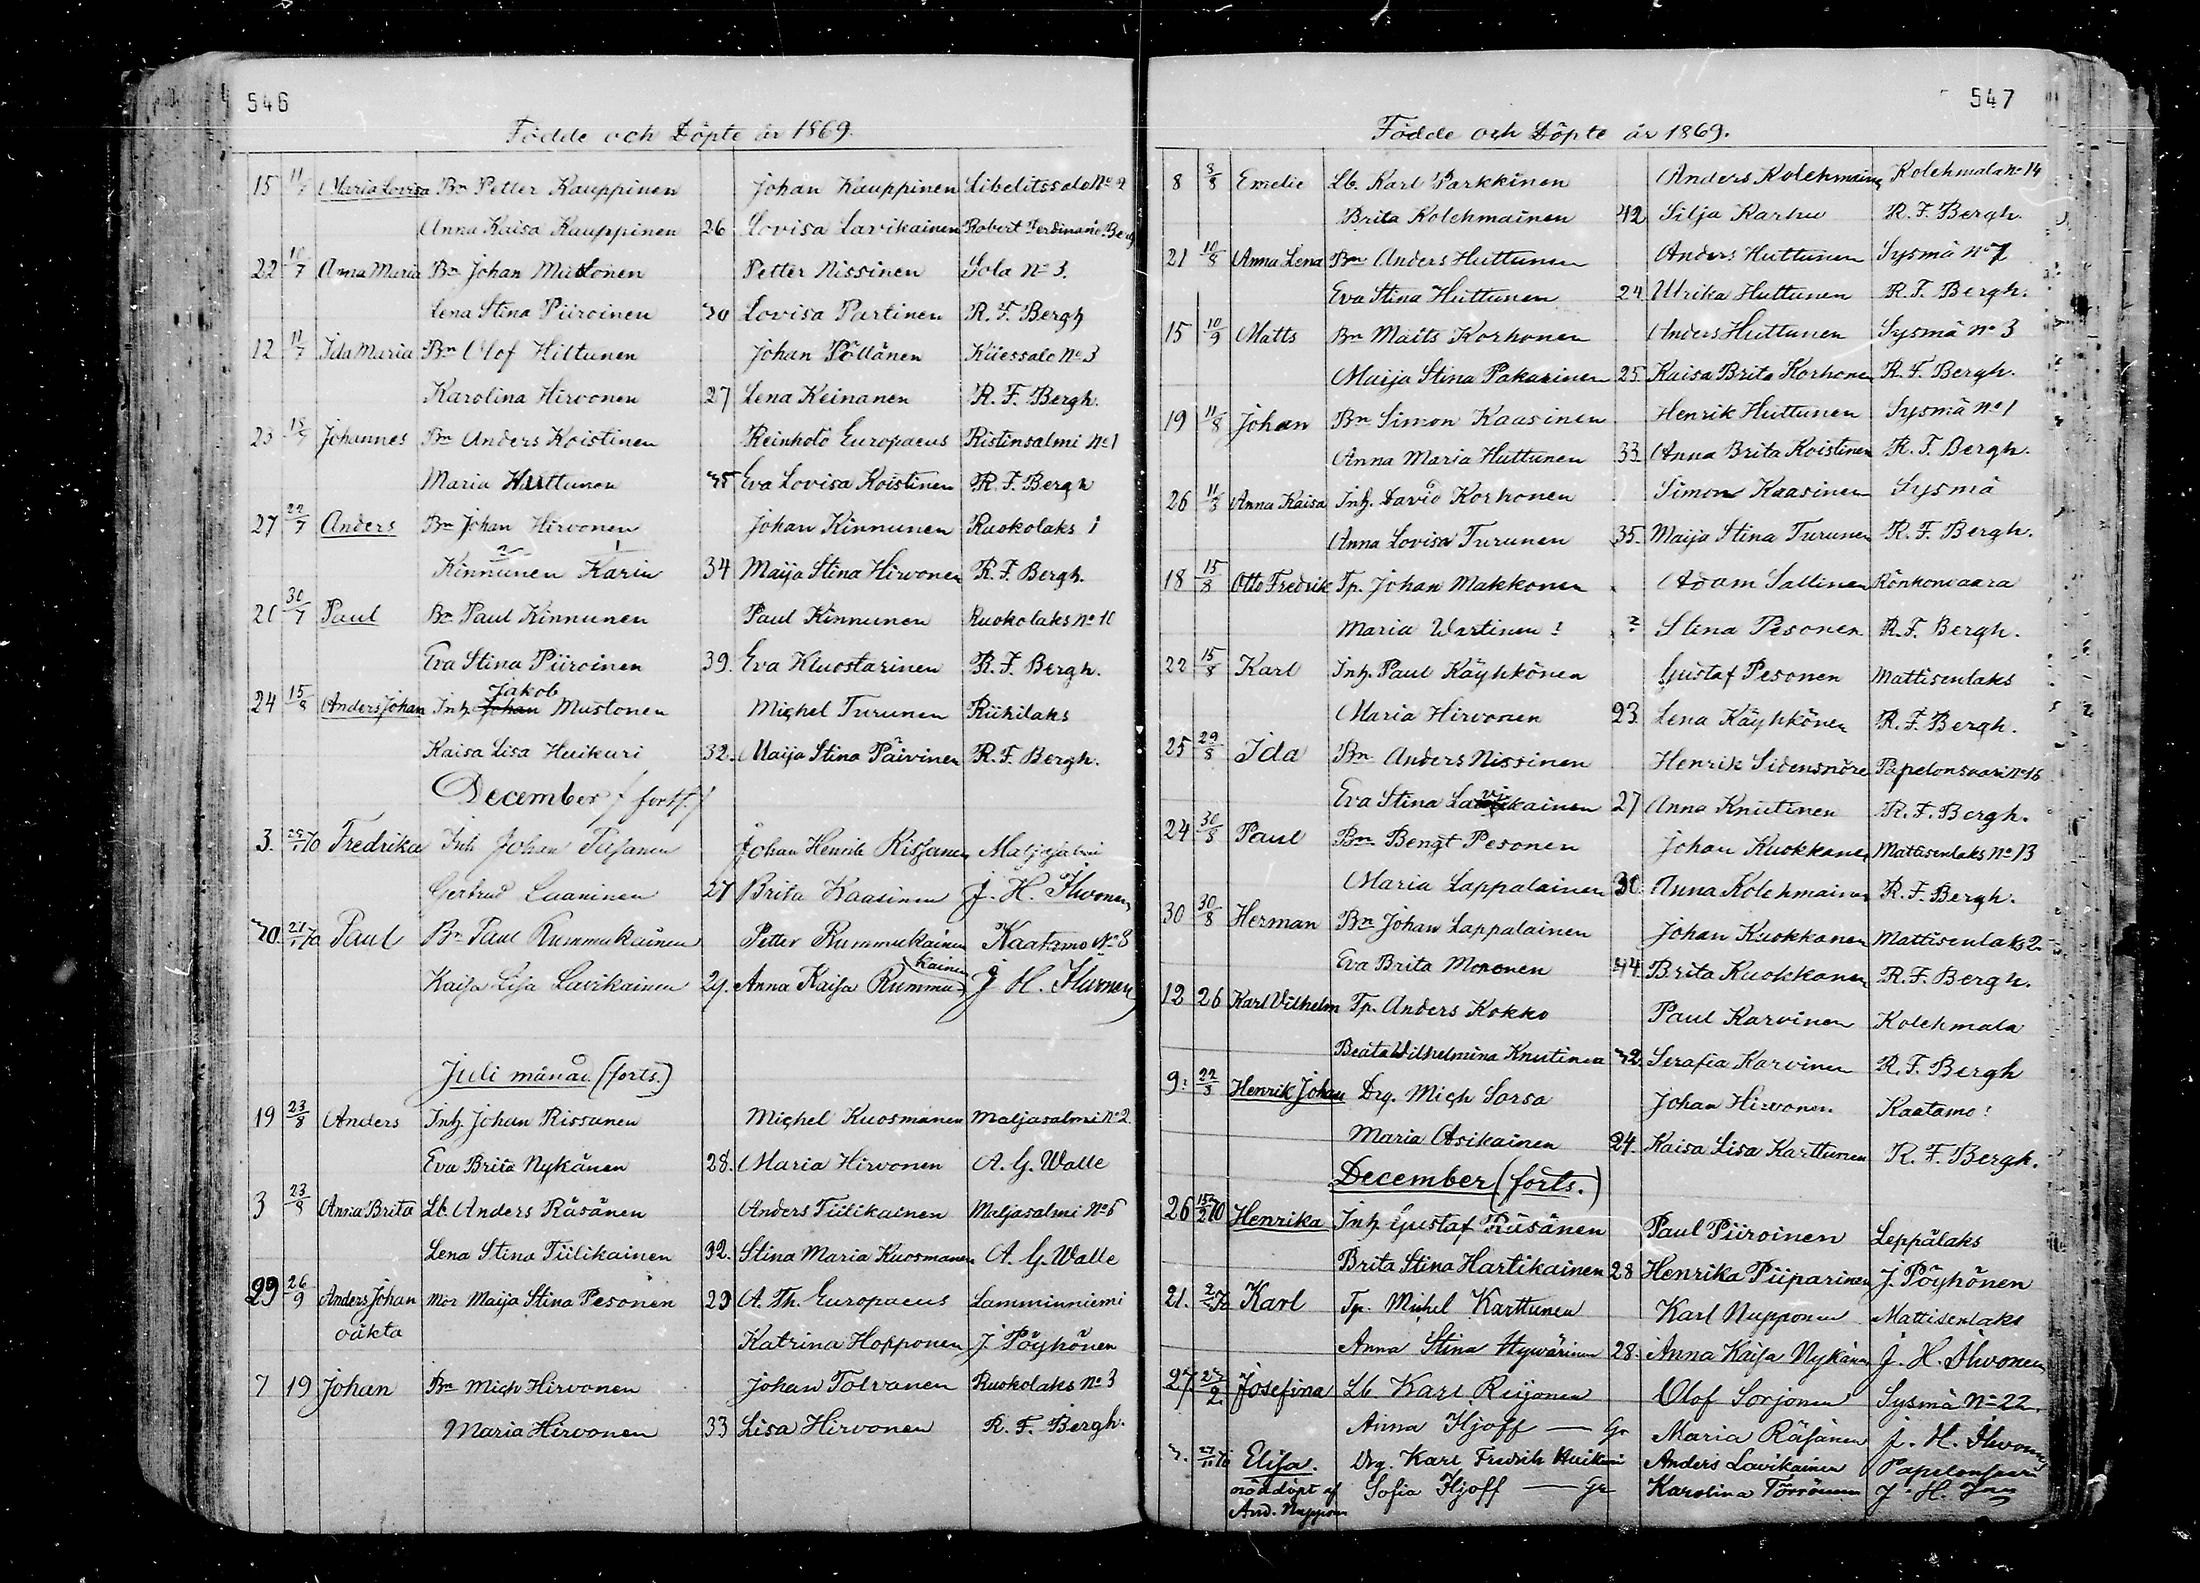 546
Födde och Döpte år 1869.
15 11/7 Maria Lovisa Bn Petter Kauppinen Johan Kauppinen Libelitssalo No 2
Anna Kaisa Kauppinen 26 Lovisa Lavikainen Robert Ferdinand Bergh
22 10/7 Anna Maria Bn Johan Mustonen Petter Nissinen Sola No 3.
Lena Stina Piiroinen 30 Lovisa Partinen R. F. Bergh
12 11/7 Ida Maria Bn Olof Hiltunen Johan Pöllänen Kiiessalo No 3
Karolina Hirvonen 27 Lena Keinanen R. F. Bergh.
23 15/7 Johannes Bn Anders Koistinen Reinhold Europaeus Ristinsalmi No 1
Maria Huttunen 35 Eva Lovisa Koistinen R. F. Bergh
27 22/7 Anders Bn Johan Hirvonen Johan Kinnunen Ruokolaks 1
2 1
Kinnunen Karin 34 Maija Stina Hirvonen R. F. Bergh.
21 30/7 Paul Bn Paul Kinnunen Paul Kinnunen Ruokolaks No 10
Eva Stina Piiroinen 39. Eva Kluostarinen R. F. Bergh.
Jakob
24 15/8 Anders Johan Inh. Johan Mustonen Michel Turunen Riihilaks
Kaisa Lisa Huikuri 32. Maija Stina Päivinen R. F. Bergh.
December / forts. /
3. Fredrika Inh Johan Johan Henrik Rissanen Maljasalmi
Gertrud Laaninen 27 Brita Kaasinen J. H. Ihvonen
30. 21/1 70 Paul Bn Paul Rummukainen Petter Rummukainen Kaatamo No 8
kainen
Kaisa Lisa Lavikainen 29. Anna Kaisa Rummu J. H. Ihvonen
Juli månad (forts.)
19 23/8 Anders Inh. Johan Rissanen Michel Kuosmanen Maljasalmi No 2
Eva Brita Nykänen 28. Maria Hirvonen A. G. Walle
3 23/8 Anna Brita Lb. Anders Räsänen Anders Tiilikainen Maljasalmi No 6
Lena Stina Tiilikainen 32. Stina Maria Kuosmanen A. G. Walle
29 26/9 Anders Johan Mor Maija Stina Pesonen 29 A. Th. Europaeus Lamminniemi
oäkta Katrina Hopponen J. Pöyhönen
7 19 Johan Bn Mich Hirvonen Johan Tolvanen Ruokolaks No 3
Maria Hirvonen 33 Lisa Hirvonen R. F. Bergh.
547
Födde och Döpte år 1869.
8 8/8 Emelie Lb. Karl Parkkinen Anders Kolehmainen Kolehmala No 14
Brita Kolehmainen 42 Silja Karhu R. F. Bergh.
21 10/8 Anna Lena Bn Anders Huttunen Anders Huttunen Sysmä No 7
Eva Stina Huttunen 24 Ulrika Huttunen R. F. Bergh.
15 10/9 Matts Bn Matts Korhonen Anders Huttunen Sysmä No 3
Maija Stina Pakarinen 25. Kaisa Brita Korhonen R. F. Bergh.
19 11/8 Johan Bn Simon Kaasinen Henrik Huttunen Sysmä No 1
Anna Maria Huttunen 33. Anna Brita Koistinen R. F. Bergh.
26 11/8 Anna Kaisa Inh. David Korhonen Simon Kaasinen Sysmä
Anna Lovisa Turunen 35. Maija Stina Turunen R. F. Bergh.
18 15/8 Otto Fredrik Tp. Johan Makkonen Adam Sallinen Rönkonvaara
Maria Vartinen ? ? Stina Pesonen R. F. Bergh.
22 15/8 Karl Inh. Paul Käyhkönen Gustaf Pesonen Mattisenlaks
Maria Hirvonen 23 Lena Käyhkönen R. F. Bergh.
25 29/8 Ida Bn Anders Nissinen Henrik Sidensnöre Papelonsaari No 16
Eva Stina Lavikainen 27 Anna Knutinen R. F. Bergh.
24 30/8 Paul Bn Bengt Pesonen Johan Kuokkanen Mattisenlaks No 13
Maria Lappalainen 30. Anna Kolehmainen R. F. Bergh.
30 30/8 Herman Bn Johan Lappalainen Johan Kuokkanen Mattisenlaks 2
Eva Brita Mononen 44. Brita Kuokkanen R. F. Bergh.
12 26 Karl Vilhelm Tp. Anders Kokko Paul Karvinen Kolehmala
Beata Vilhelmina Knutinen 32. Serafia Karvinen R. F. Bergh
9. 22/8 Henrik Johan Drg. Mich Sorsa Johan Hirvonen Kaatamo
Maria Asikainen 24. Kaisa Lisa Karttunen R. F. Bergh.
December (forts.)
26 Henrika Inh. Gustaf Räsänen Paul Piiroinen Leppälaks
Brita Stina Hartikainen 28 Henrika Piiparinen J. Pöyhönen
21. Karl Tp. Michel Karttunen Karl Nupponen Mattisenlaks
Anna Stina Hyvärinen 28. Anna Kaisa Nykänen J. H. Ihvonen
27 Josefina Lb. Karl Riijonen Olof Sorjonen Sysmä No 22.
Anna Hjoff — Gr Maria Räsänen J. H. Ihvonen
Elisa. Drg. Karl Fredrik Huikuri Anders Lavikainen Papelonsaari
nöddöpt af Sofia Hjoff — Gr Karolina Törrönen J. H.
And. Nupponen